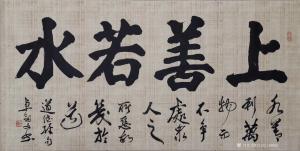 上善若水
水善
利萬
物而
不爭
處衆
人之
所惡故
幾於
道